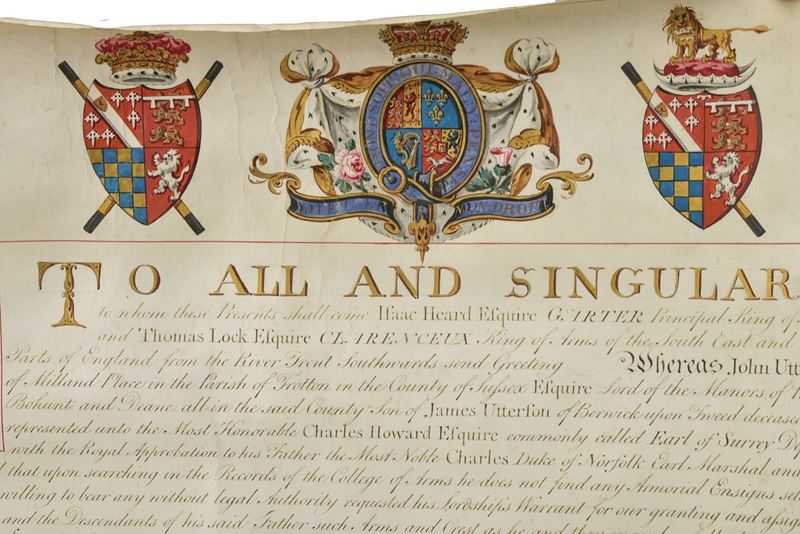 HONI SOIT QUI MAL Y PENSE
DIEU ET MON DROIT
TO ALL AND SINGULAR
to whom these Presents shall come Isaac Heard Esquire GARTER Principal King of
and Thomas Lock Esquire CLARENCEUX King of Arms of the South East and
Parts of England from the River Trent Southwards send Greeting Whereas John Utt
of Milland Place in the Parish of Trotton in the County of Sussex Esquire Lord of the Manors of
Bohunt and Deane all in the said County Son of James Utterson of Berwick upon Tweed deceased
represented unto the Most Honorable Charles Howard Esquire commonly called Earl of Surrey De
with the Royal Approbation to his Father the Most Noble Charles Duke of Norfolk Earl Marshal and
that upon searching in the Records of the College of Arms he does not find any Armorial Ensigns set
willing to bear any without legal Authority requested his Lordship's Warrant for our granting and assig
and the Descendants of his said Father such Arms and Crest as he and they